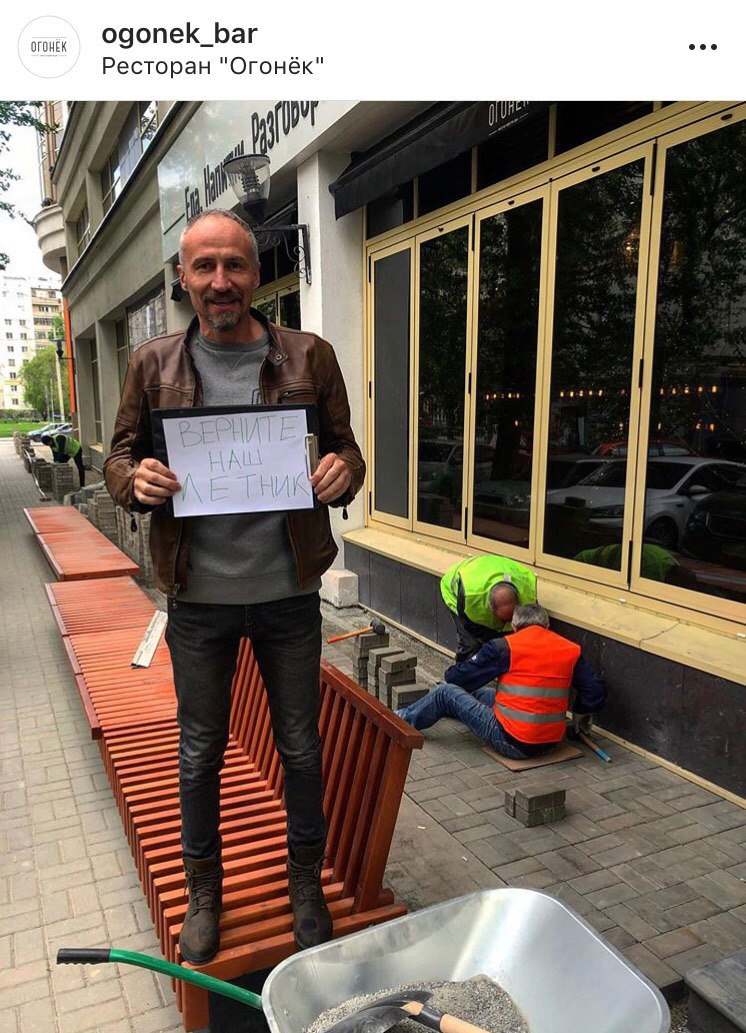 ОГОНЁК
ogonek_bar
Ресторан "Огонёк"
Еда Напитки Разговор
ОГОНЁК
ВЕРНИТЕ
НАШ
ЛЕТНИК